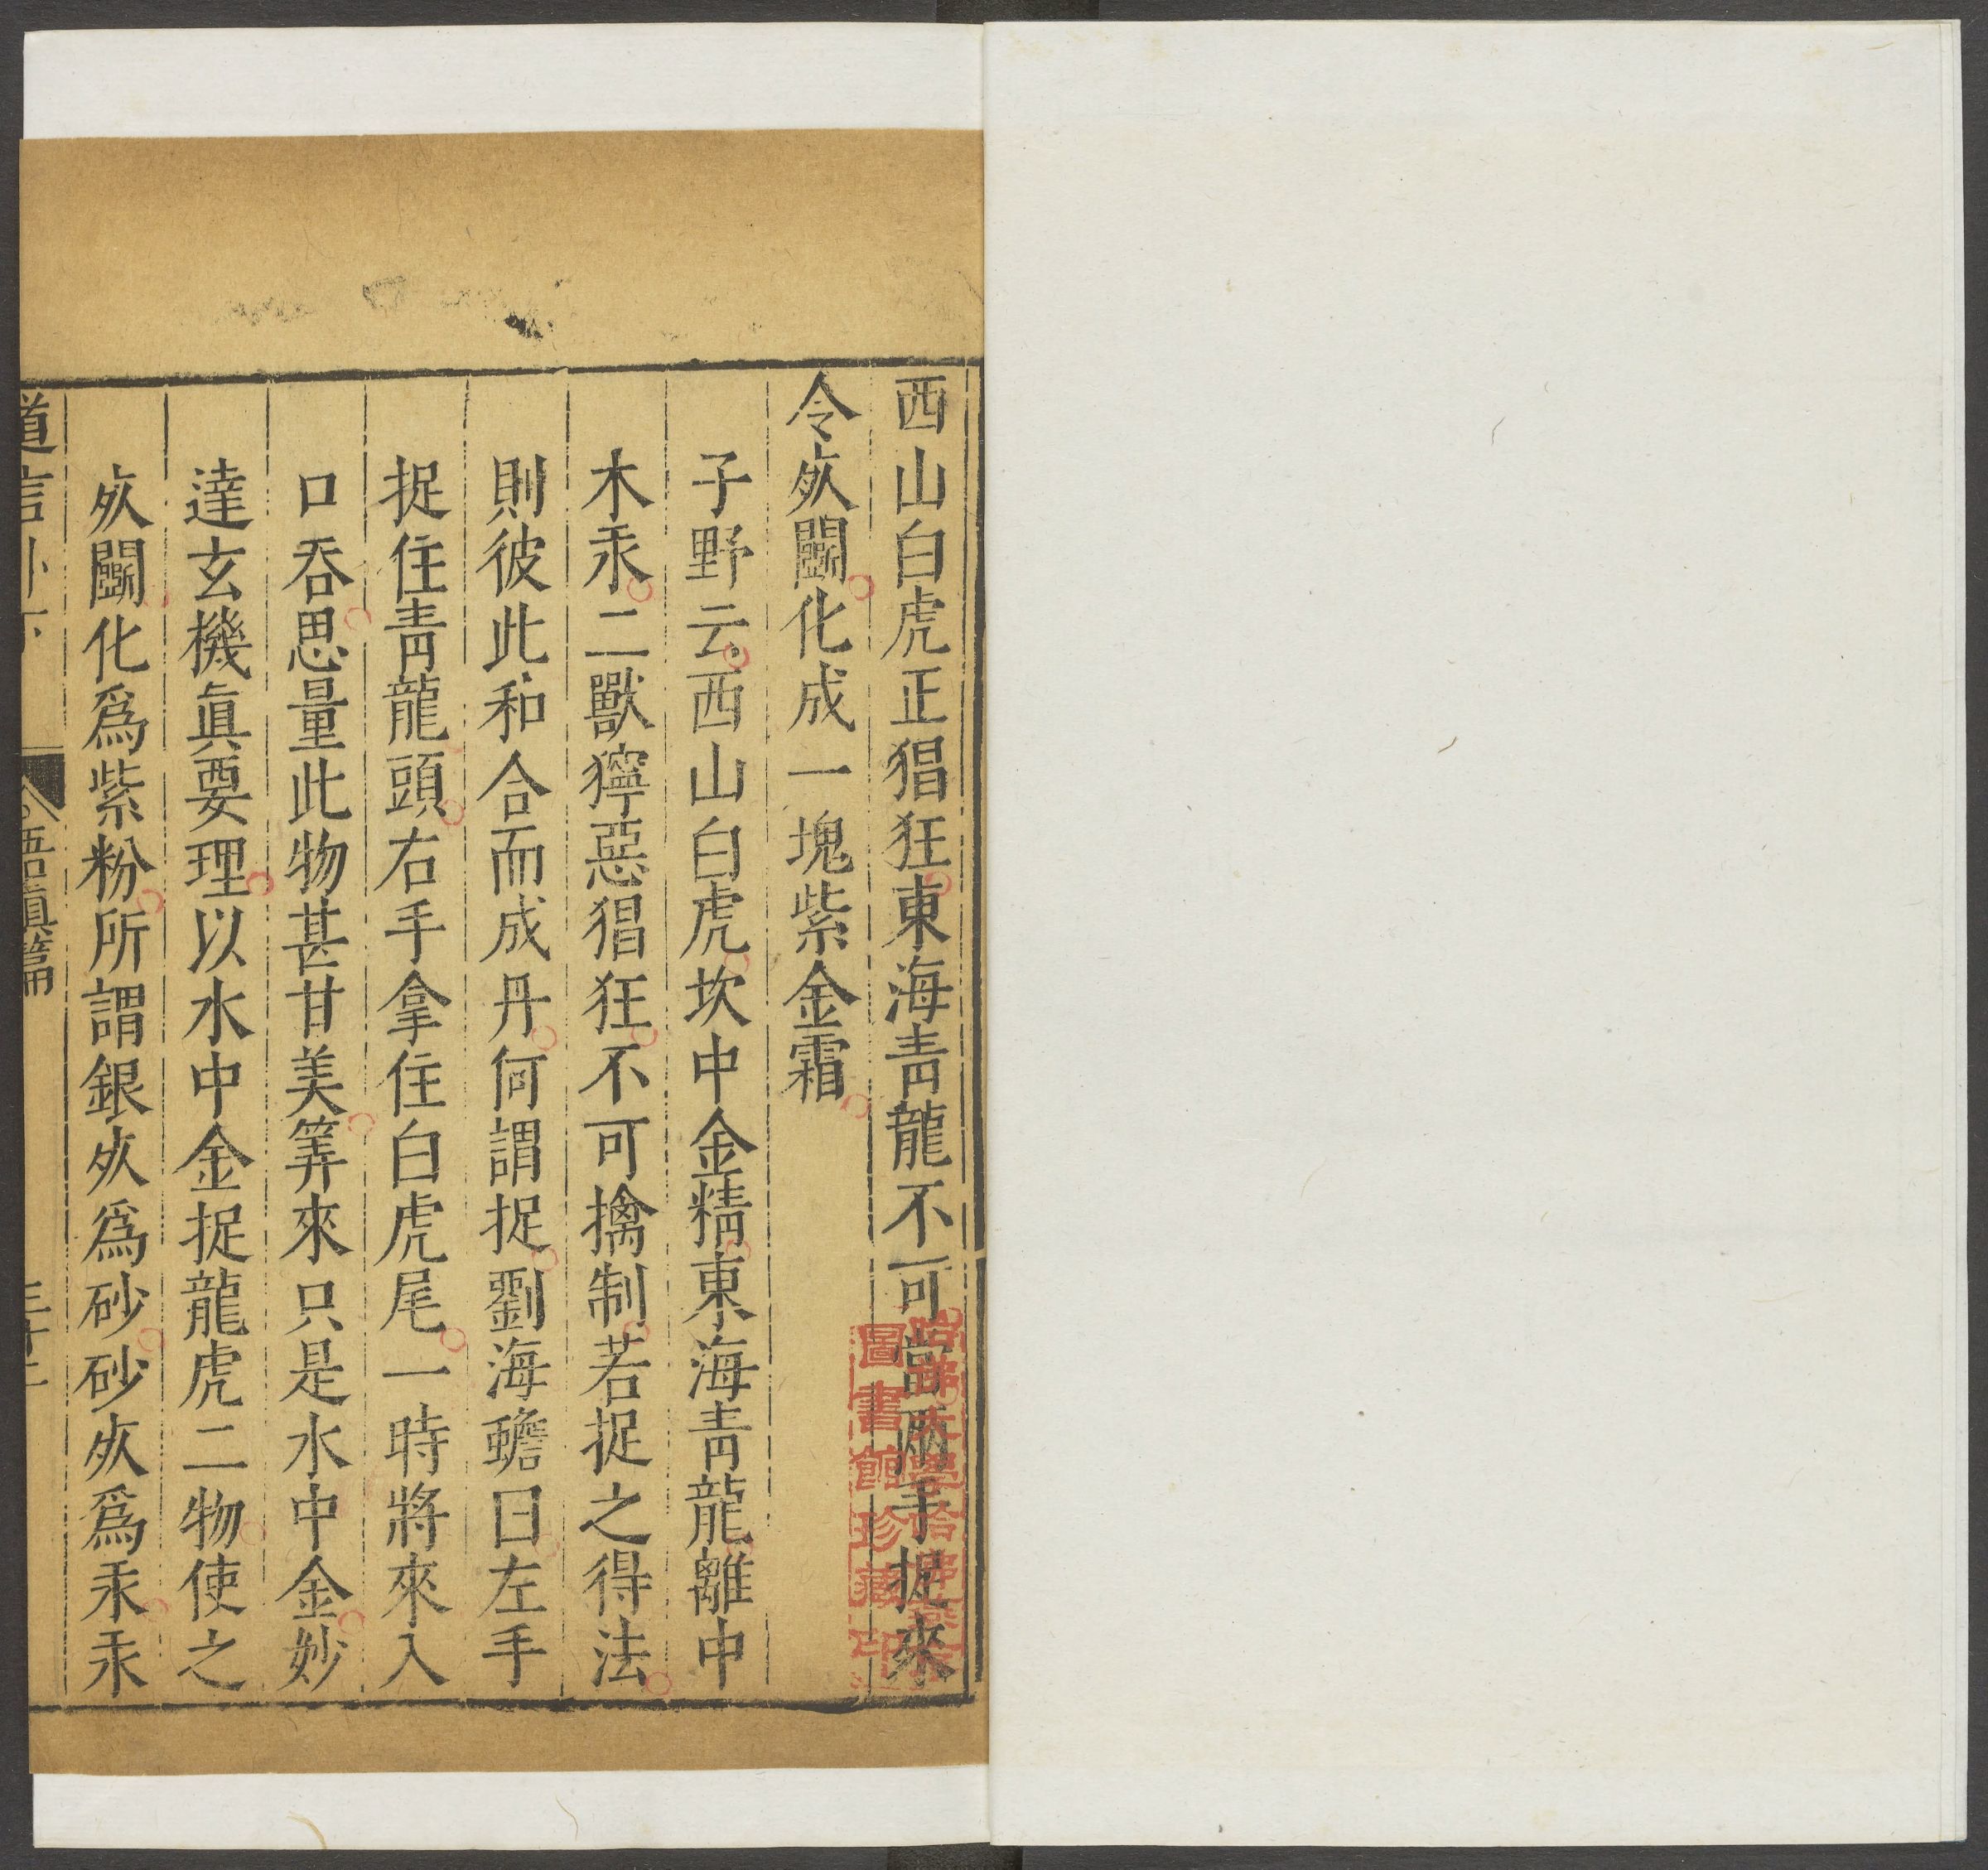 西山白虎正猖狂東海青龍不可當兩手捉來
令𣦸鬭化成一塊紫金霜
子野云西山白虎坎中金精東海青龍離中
木汞二獸獰惡猖狂不可擒制若捉之得法
則彼此和合而成丹何謂捉劉海蟾曰左手
捉住青龍頭右手拿住白虎尾一時將來入
口吞思量此物甚甘美筭來只是水中金妙
達玄機眞要理以水中金捉龍虎二物使之
𣦸鬭化爲紫粉所謂銀𣦸爲砂砂𣦸爲汞汞
道言外下 悟眞篇 三十二
哈佛大學哈佛燕京
圖書館珍藏印